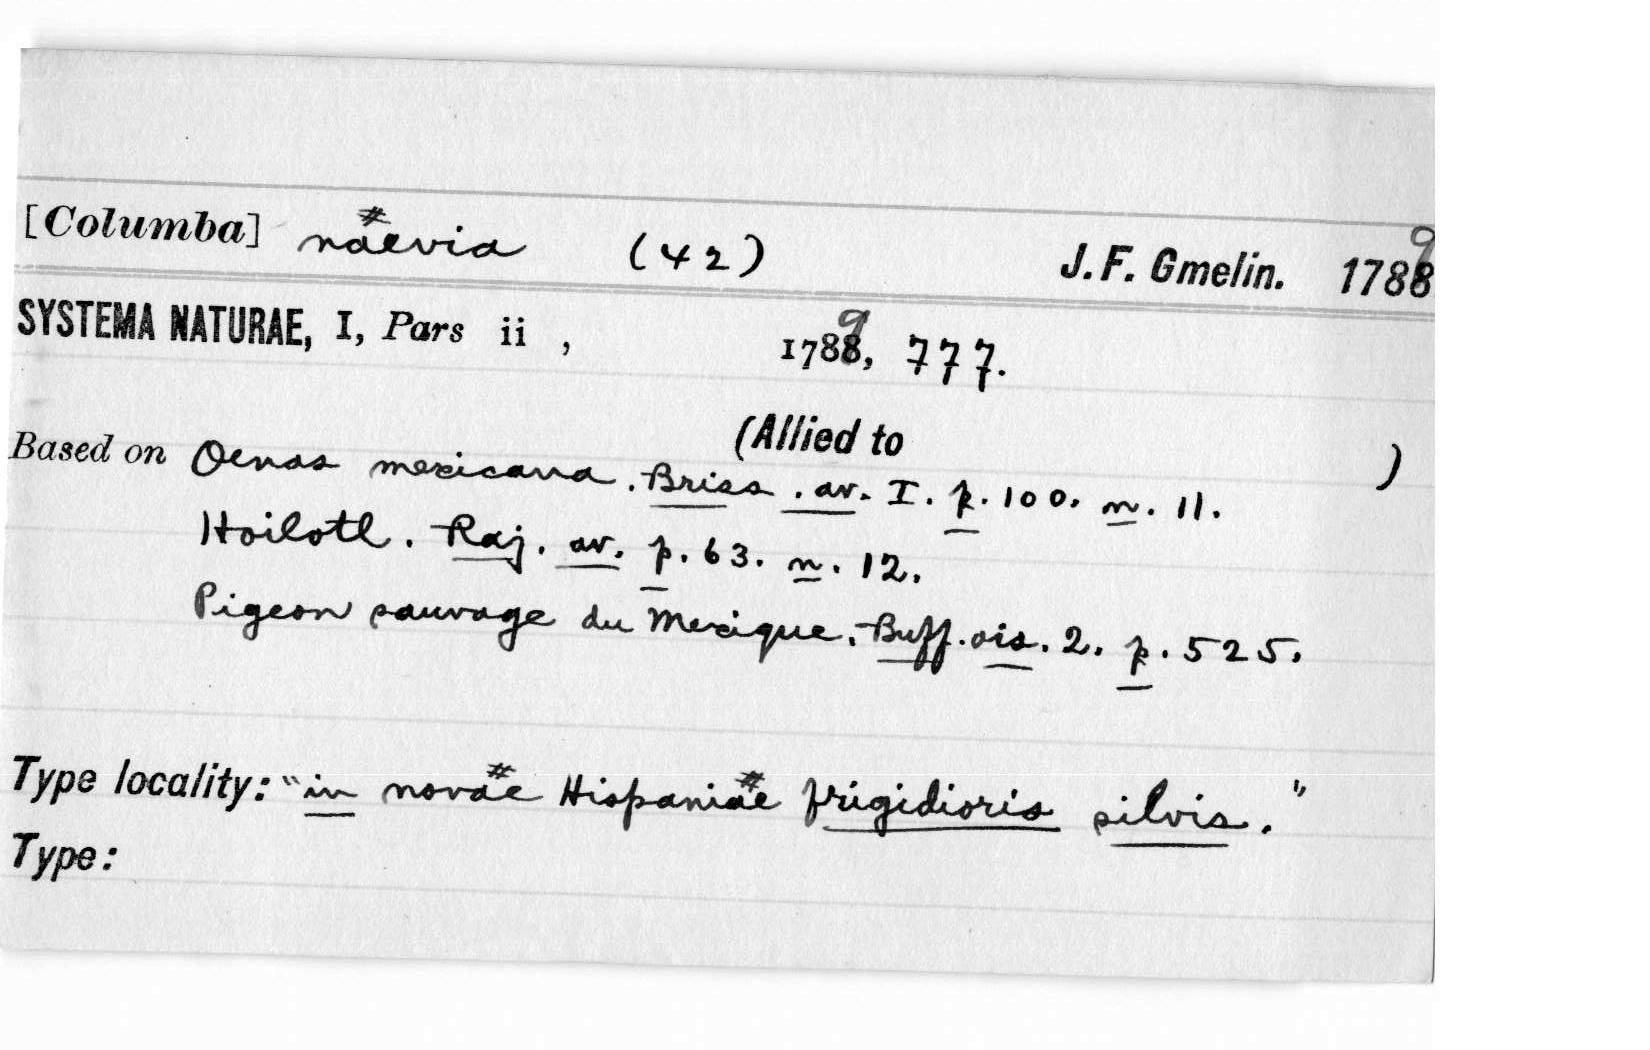 [Columba] naevia (42) J. F. Gmelin. 1789
SYSTEMA NATURAE, I, Pars ii , 1789, 777.
(Allied to )
Based on Oenas mexicana. Briss. av. I. p. 100. n. 11.
Hoilotl. Raj. av. p. 63. n. 12.
Pigeon sauvage du Mexique. Buff. ois. 2. p. 525.
Type locality: "in novae Hispaniae frigidioris silvis."
Type: